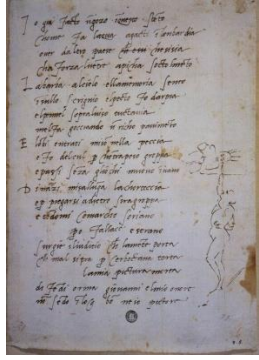 I o gia facto ngozo in questo stento
chome fa lacqua agacti in lombardia
over daltro paese che si sia
cha forza luentre apicha socto lmento
L a barba alcielo ellamemoria sento
in sullo scrignio elpecto fo darpia
elpennel sopraluiso tuctauia
mel fa gocciando un richo pauimento
E lobi entrati miso nella peccia
e fo delcul p chotrapeso groppa
e passi seza gliochi muouo inuano
D inazi misallunga lachorteccia
e p piegarsi adietro siragroppa
e tendomi comarcho soriano
po fallace e strano
surgie iliuditio che lamente porta
che mal sitra p cerbottana torta
lamia pictura morta
difedi orma giouanni elmio onore
no sedo iloco bo ne io pictore